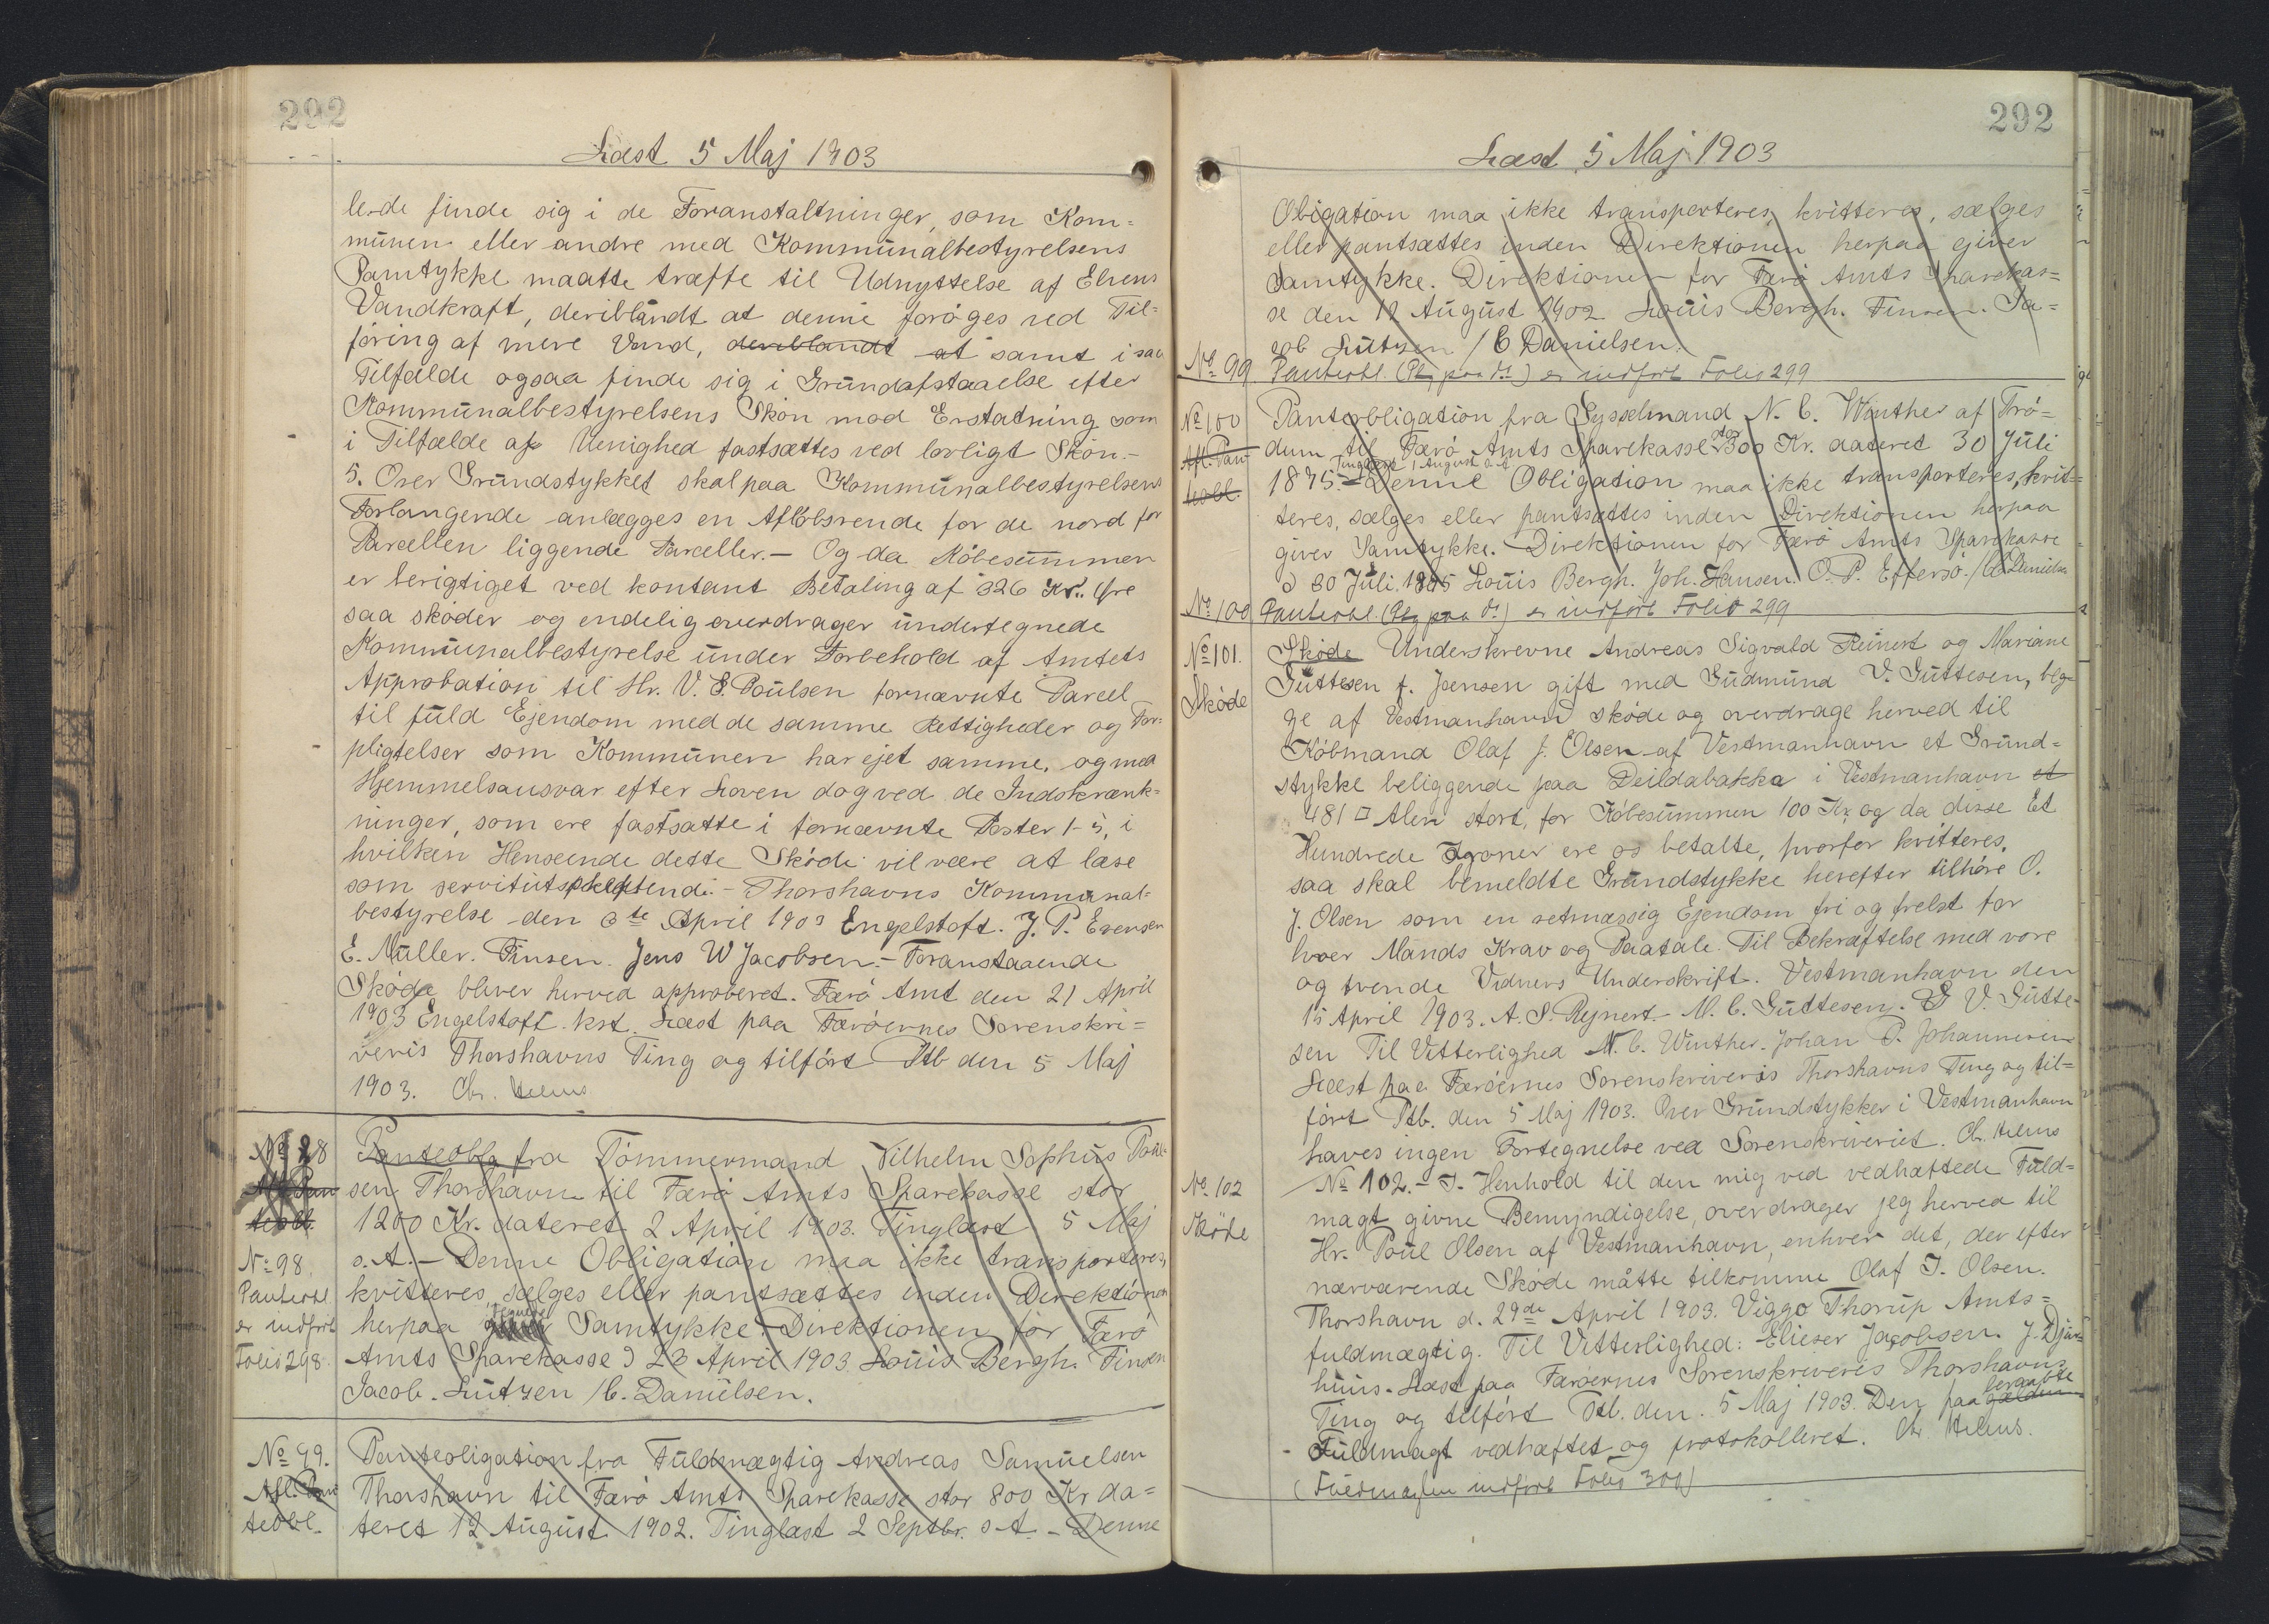 292
Læst 5 Maj 1903
lede finde sig i de Foranstaltninger, som Kom=
munen eller andre med Kommunalbestyrelsens
Samtykke maatte træffe til Udnyttelse af Elvens
Vandkraft, deriblandt at denne forøges ved Til=
føring af mere Vand, deriblandt at samt i saa
Tilfælde ogsaa finde sig i Grundafstaaelse efter
Kommunalbestyrelsens Skøn mod Erstatning som
i Tilfælde af Uenighed fastsættes ved lovligt Skøn.-
5. Over Grundstykket skal paa Kommunalbestyrelsens
Forlangende anlægges en Afløbsrende for de nord for
Parcellen liggende Parceller. — Og da Købesummen
er berigtiget ved kontant Betaling af 326 Kr. Øre
saa skøder og endelig overdrager undertegnede
Kommunalbestyrelse under Forbehold af Amtets
Approbation til Hr. V. S. Poulsen fornævnte Parcel
til fuld Ejendom med de samme Rettigheder og For=
pligtelser som Kommunen har ejet samme, og med
Hjemmelsansvar efter Loven dog ved de Indskrænk=
ninger, som ere fastsatte i fornævnte Poster 1-5, i
hvilken Henseende dette Skøde vil være at læse
som servitutstiftende. - Thorshavns Kommunal=
bestyrelse den 3te April 1903 Engelstoft. J. P. Evensen
E. Müller. Finsen. Jens W Jacobsen. - Foranstaaende
Skøde bliver herved approberet. Færø Amt den 21 April
1903 Engelstoft. kst. Læst paa Færøernes Sorenskri=
veris Thorshavns Ting og tilført Ptb den 5 Maj
1903. Chr. Helms
No 98
Afl. Pan
teobl.
No 98.
Panteobl
er indført
Folio 298.
Panteoblg fra Tømmermand Vilhelm Sophus Poul=
sen Thorshavn til Færø Amts Sparekasse stor
1200 Kr. dateret 2 April 1903. Tinglæst 5 Maj
s. A. - Denne Obligation maa ikke transporteres,
kvitteres, sælges eller pantsættes inden Direktionen
herpaa giver Samtykke. Direktionen for Færø
Amts Sparekasse d 23 April 1903. Louis Bergh. Finsen
Jacob. Lützen / C. Danielsen.
No 99.
Afl. Pan
teobl.
Panteoligation fra Fuldmægtig Andreas Samuelsen
Thorshavn til Færø Amts Sparekasse stor 800 Kr da=
teret 12 August 1902. Tinglæst 2 Septbr. s. A. - Denne
292
Læst 5 Maj 1903
Obligation maa ikke transporteres, kvitteres, sælges
eller pantsættes inden Direktionen herpaa giver
Samtykke. Direktionen for Færø Amts Sparekas=
se den 12 August 1902 Louis Bergh. Finsen. Ja=
cob Lützen / C Danielsen.
No 99 Panteobl. (Ptg paa do) er indført Folio 299
No 100
Afl. Pan
teobl.
Panteobligation fra Sysselmand N. C. Winther af Trø=
dum til Færø Amts Sparekasse stor 300 Kr. dateret 30 Juli
Tinglæst 1 August s. A.
1895. - Denne Obligation maa ikke transporteres, kvit=
teres, sælges eller pantsættes inden Direktionen herpaa
giver Samtykke. Direktionen for Færø Amts Sparekasse
d 30 Juli 1895 Louis Bergh. Joh. Hansen. O. P. Effersø. / C. Danielsen
No 100 Panteobl. (Ptg paa do) er indført Folio 299
No 101.
Skøde
Skøde Underskrevne Andreas Sigvald Reinert og Mariane
Guttesen f. Joensen gift med Gudmund V. Guttesen, beg=
ge af Vestmanhavn skøde og overdrage herved til
Købmand Olaf J. Olsen af Vestmanhavn et Grund=
stykke beliggende paa Deildabakka i Vestmanhavn et
481 □ Alen stort, for Købesummen 100 Kr. og da disse Et
Hundrede Kroner ere os betalte, hvorfor kvitteres,
saa skal bemeldte Grundstykke herefter tilhøre O.
J. Olsen som en retmæssig Ejendom fri og frelst for
hver Mands Krav og Paatale. Til Bekræftelse med vore
og tvende Vidners Underskrift. Vestmanhavn den
15 April 1903. A. S. Rejnert. - M. C. Guttesen. G V. Gutte=
sen Til Vitterlighed N. C. Winther. Johan P. Johannesen
Læst paa Færøernes Sorenskriveris Thorshavns Ting og til=
ført Ptb. den 5 Maj 1903. Over Grundstykker i Vestmanhavn
haves ingen Fortegnelse ved Sorenskriveriet. Ch. Helms
No 102
Skøde
No 102. - I Henhold til den mig ved vedhæftede Fuld=
magt givne Bemyndigelse, overdrager jeg herved til
Hr. Poul Olsen af Vestmanhavn, enhver det, der efter
nærværende Skøde måtte tilkomme Olaf J. Olsen.
Thorshavn d. 29de April 1903. Viggo Thorup Amts=
fuldmægtig. Til Vitterlighed: Elieser Jacobsen. J. Djur=
huus. Læst paa Færøernes Sorenskriveris Thorshavns
Ting og tilført Ptb. den. 5 Maj 1903. Den paa beraabte
Fuldmagt vedhæftet og protokolleret. Chr. Helms.
(Fuldmagten indført Folio 300)